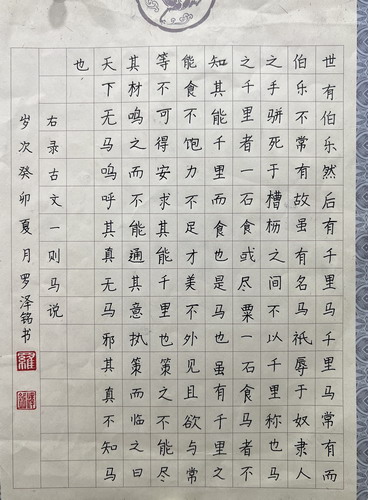 世有伯乐然后有千里马千里马常有而
伯乐不常有故虽有名马祇辱于奴隶人
之手骈死于槽枥之间不以千里称也马
之千里者一石食或尽粟一石食马者不
知其能千里而食也是马也虽有千里之
能食不饱力不足才美不外见且欲与常
等不可得安求其能千里也策之不能尽
其材鸣之而不能通其意执策而临之曰
天下无马呜呼其真无马邪其真不知马
也
右录古文一则马说
岁次癸卯夏月罗泽铭书
羅